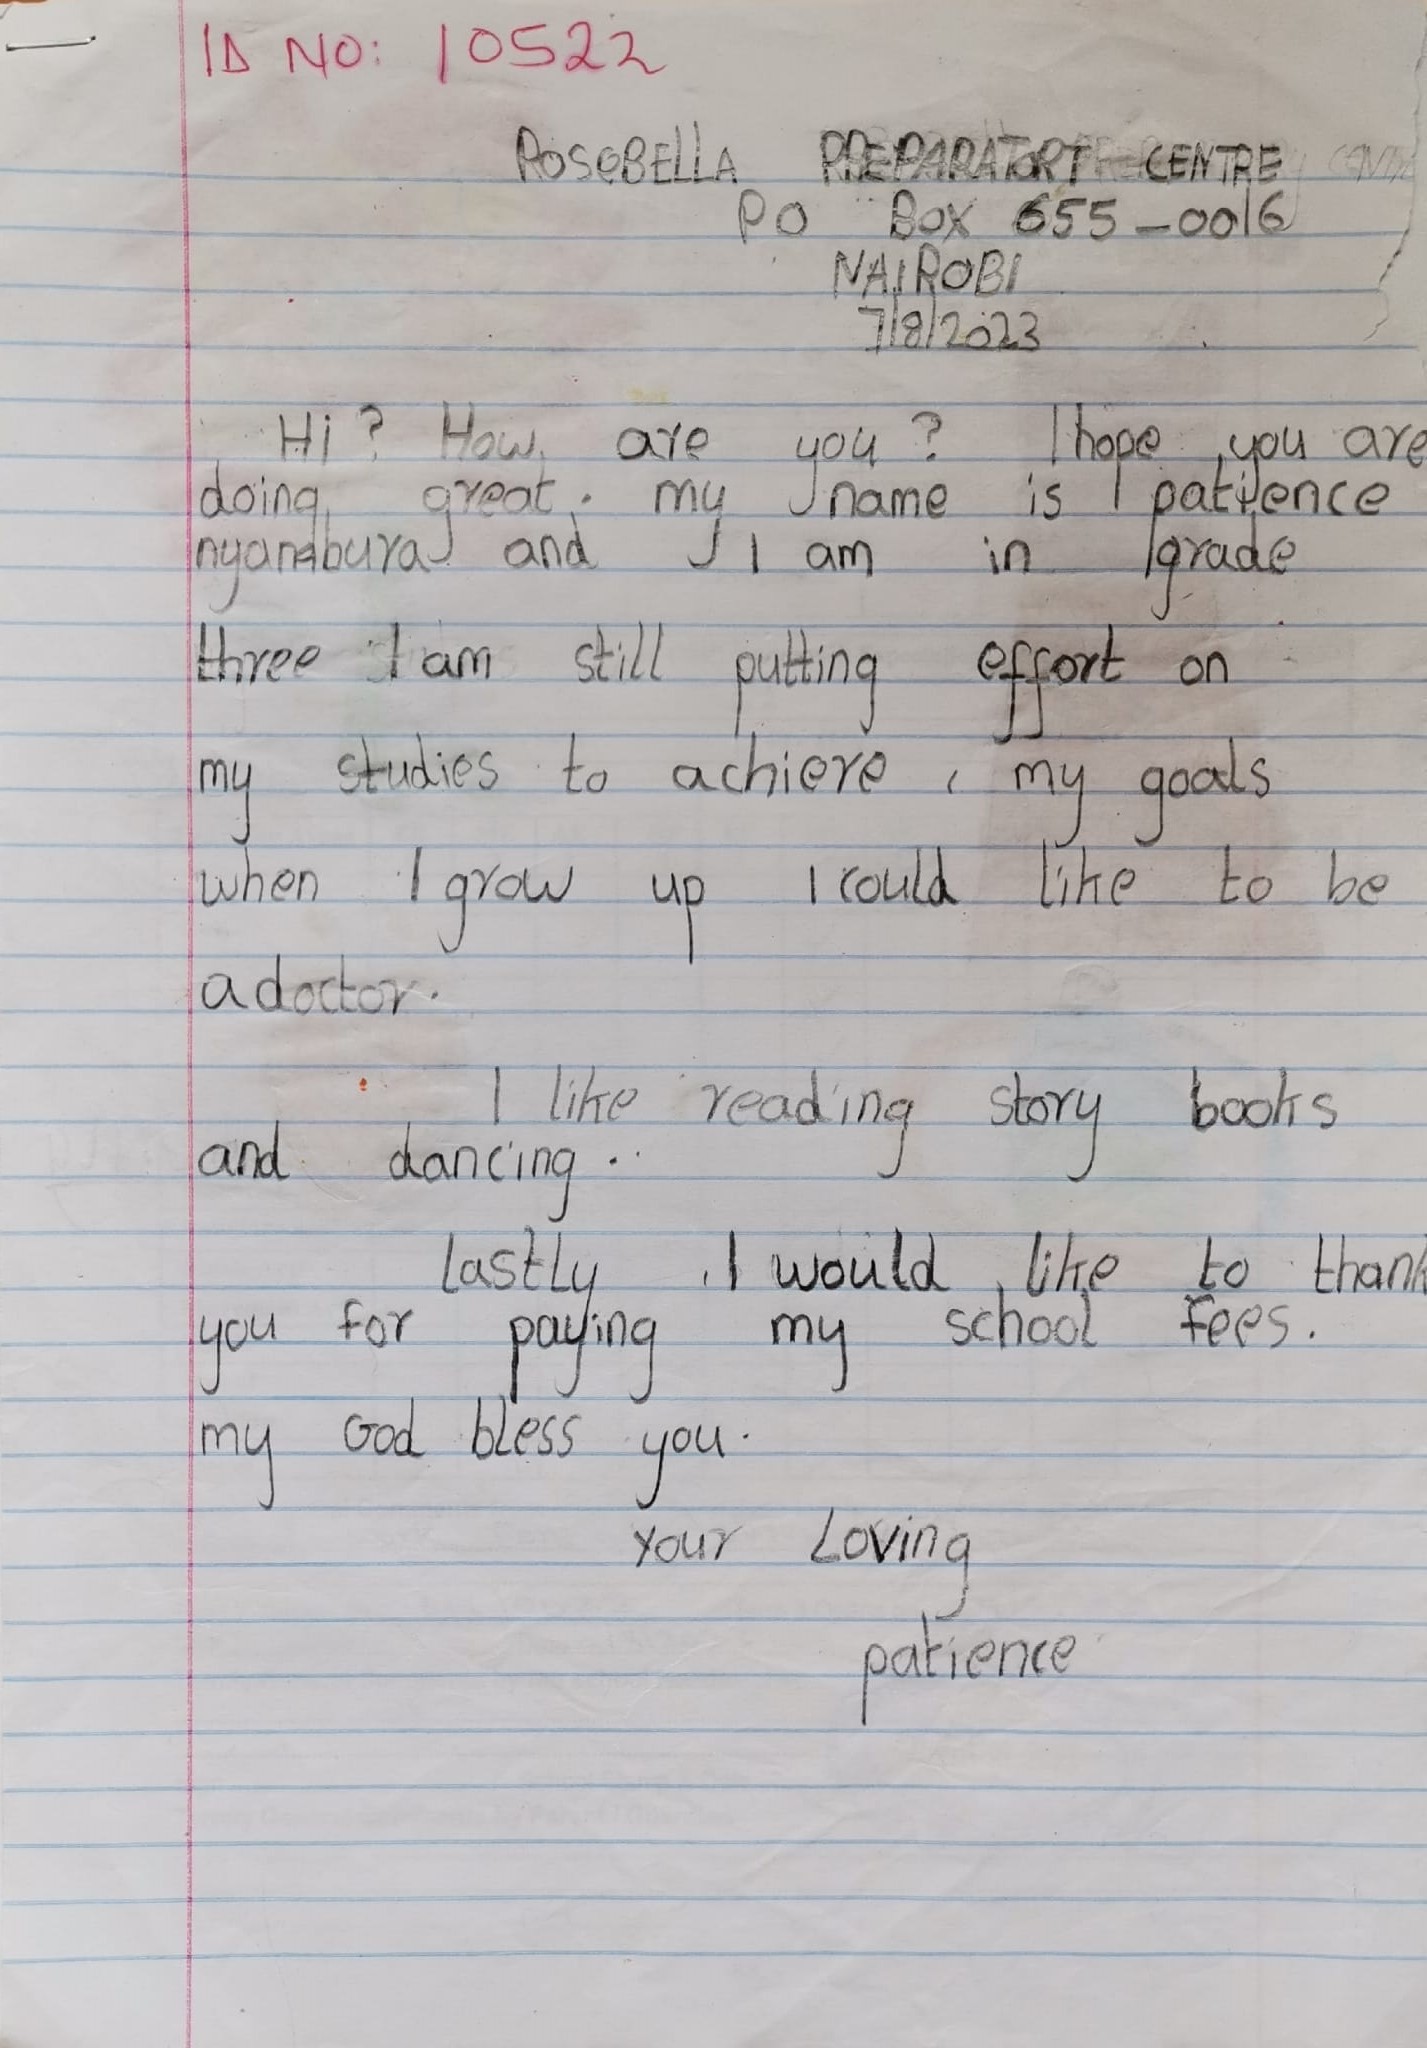 ID NO: 10522
ROSEBELLA PREPARATORY CENTRE
PO BOX 655-0016
NAIROBI
7/8/2023
Hi? How are you? I hope you are
doing great. my name is patience
nyambura and I am in grade
three I am still putting effort on
my studies to achieve my goals
when I grow up I could like to be
a doctor.
I like reading story books
and dancing.
Lastly I would like to thank
you for paying my school fees.
my God bless you.
your Loving
patience